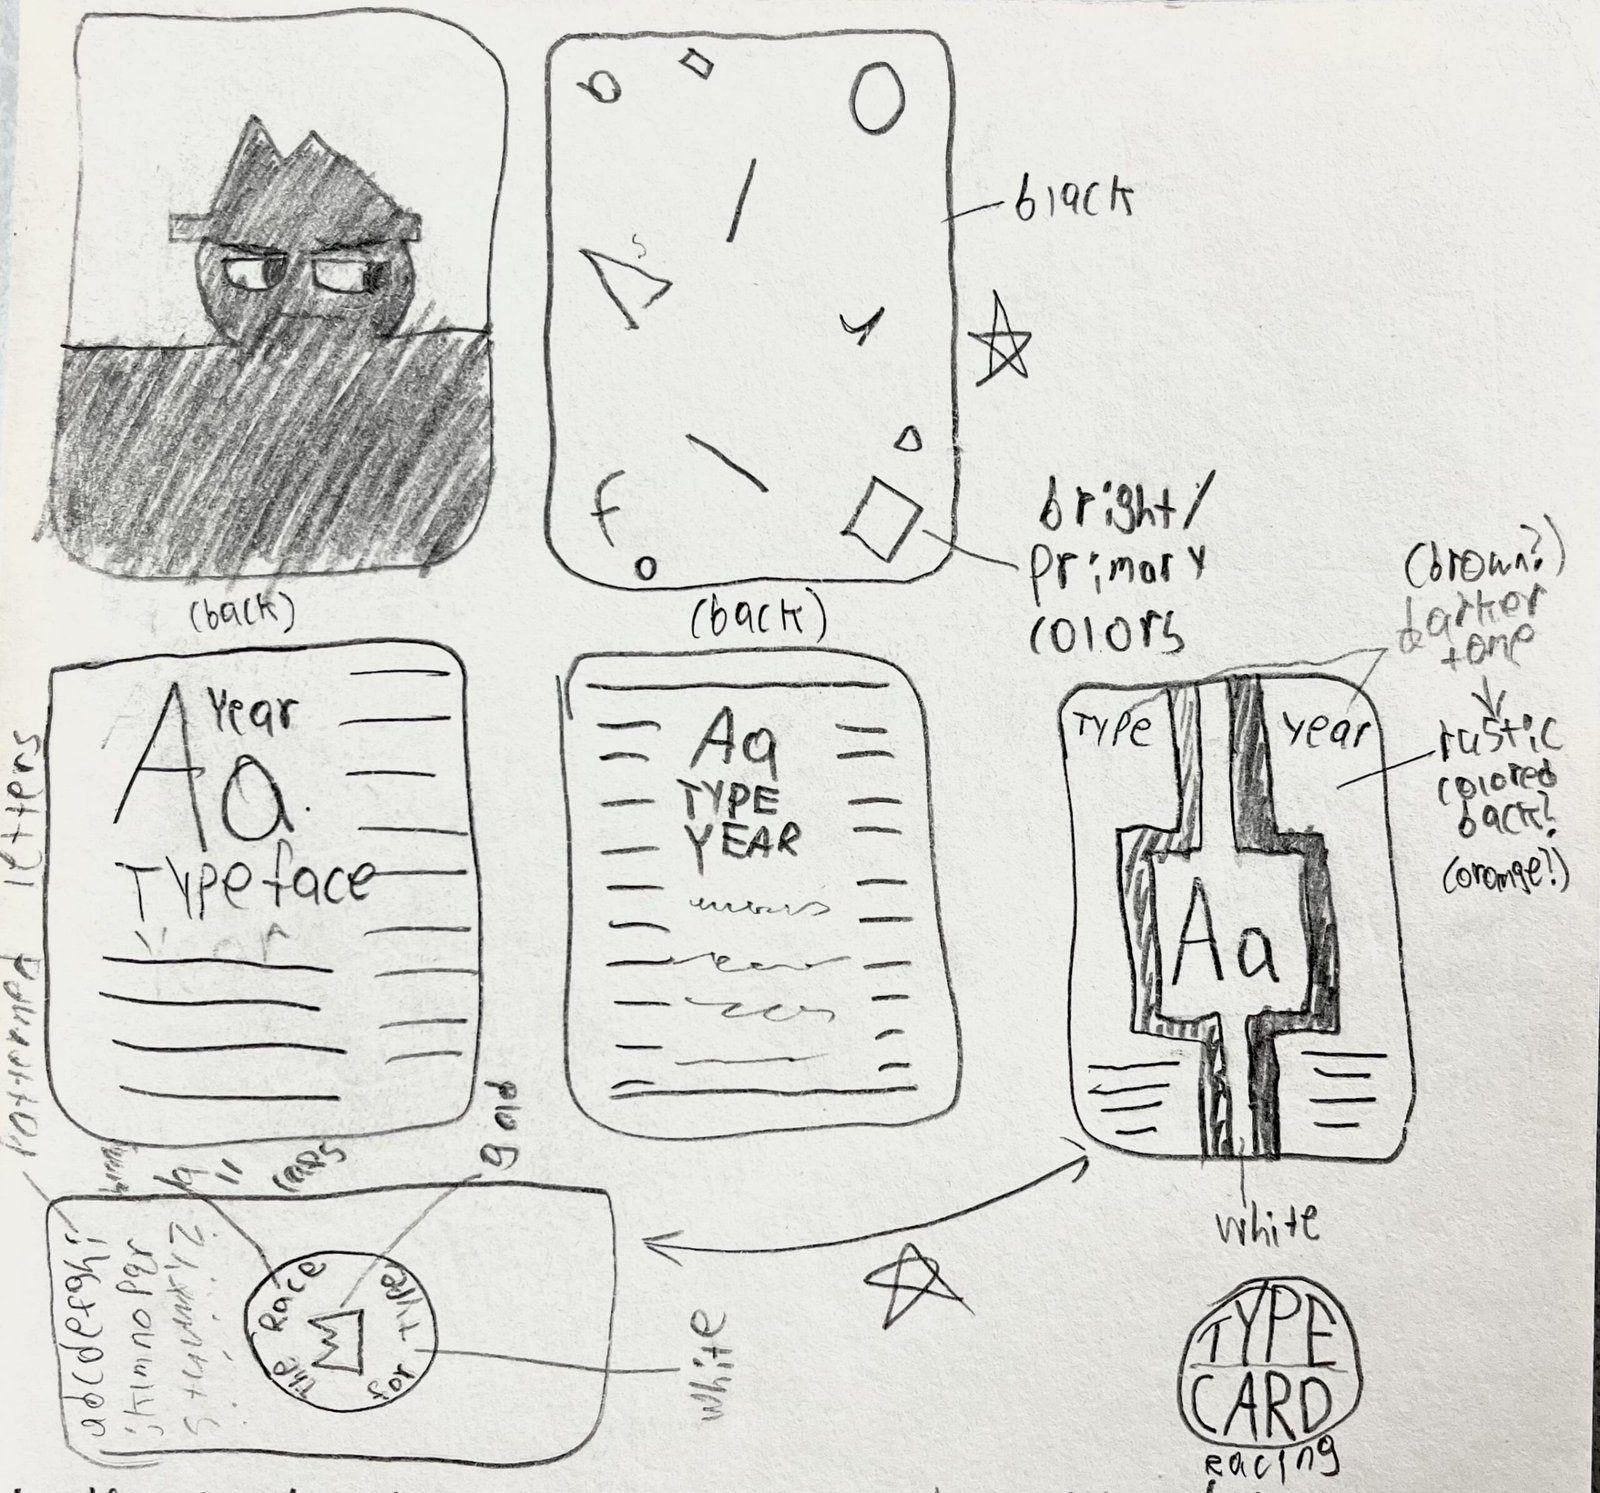 b
black
f
bright/
primary
colors
(back)
(back)
(brown?)
darker
tone
rustic
colored
back?
(orange?)
Year
Aa
Typeface
Aa
TYPE
YEAR
TYPE
year
Aa
white
patterned letters
gold
caps
abcdefghi
jklmnopqr
stuvwxyz
The Race
for Type
white
TYPE
CARD
racing